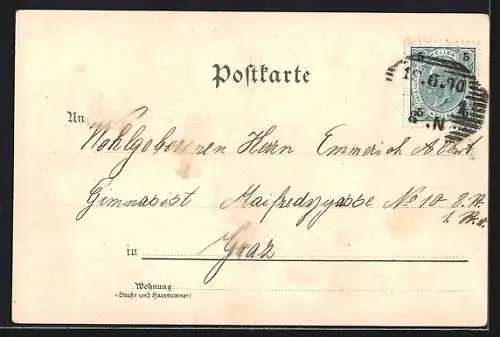 Postkarte
5 5
5 5
An
Wohlgeborenen Herrn Emmerich
Gimnasist Maifredygasse No 10
in Graz
Wohnung
(Straße und Hausnummer)